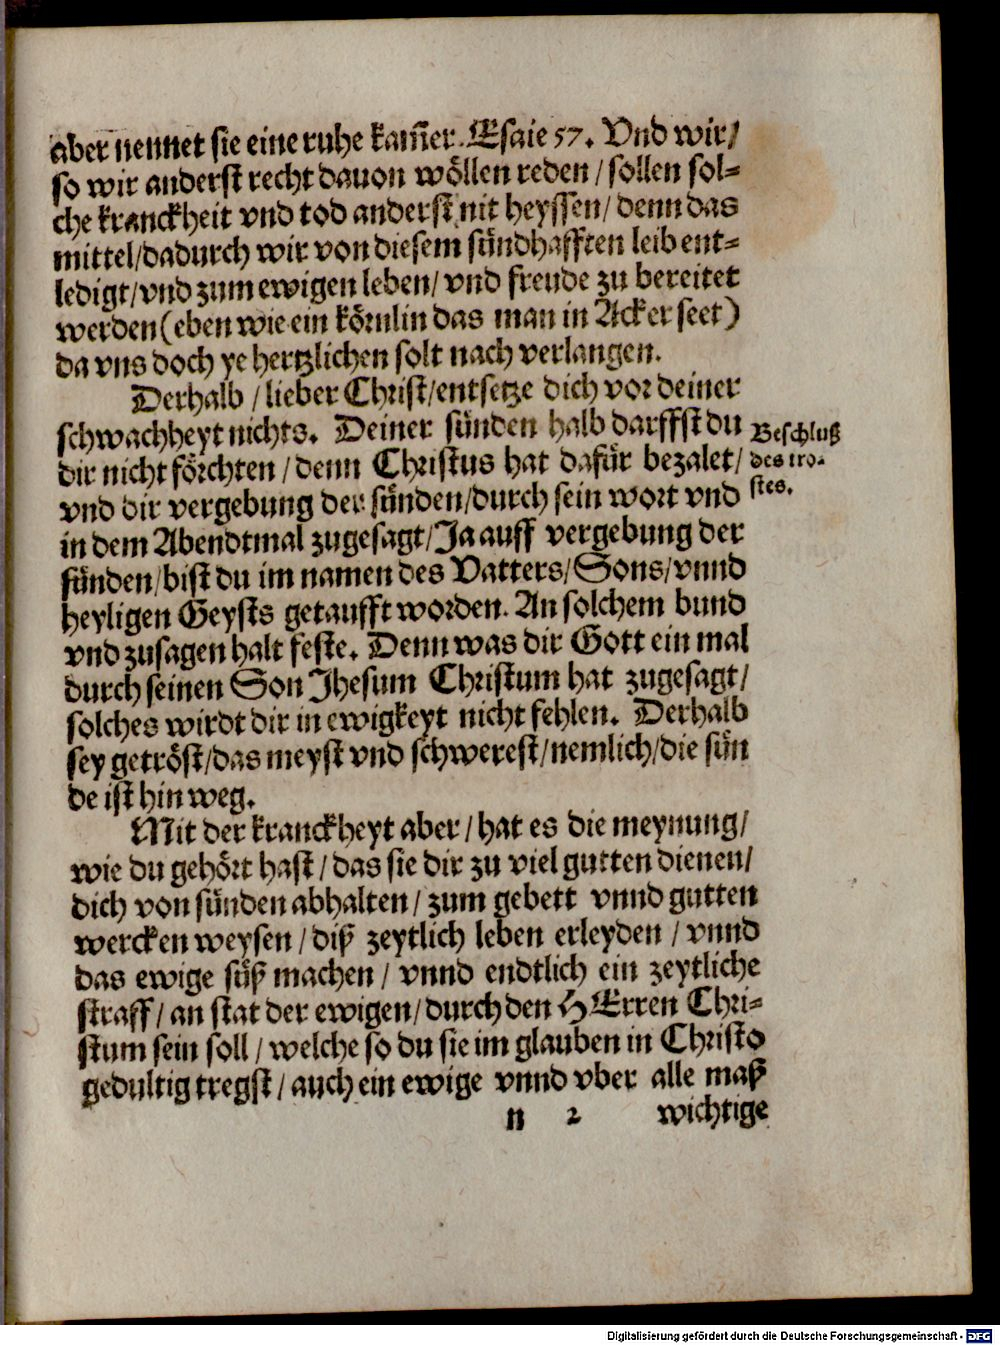 aber nennet sie eine ruhe kam̃er. Esaie 57. Vnd wir/
so wir anderst recht dauon wöllen reden / sollen sol⸗
che kranckheit vnd tod anderst nit heyssen/ denn das
mittel/dadurch wir von diesem sündhafften leib ent⸗
ledigt/vnd zum ewigen leben/ vnd freude zu bereitet
werden (eben wie ein körnlin das man in Acker seet)
da vns doch ye hertzlichen solt nach verlangen.
Derhalb / lieber Christ/entsetze dich vor deiner
schwachheyt nichts. Deiner sünden halb darffst du
dir nicht förchten / denn Christus hat dafür bezalet/
vnd dir vergebung der sünden/durch sein wort vnd
in dem Abendtmal zugesagt/Ja auff vergebung der
sünden/bist du im namen des Vatters/Sons/vnnd
heyligen Geysts getaufft worden. An solchem bund
vnd zusagen halt feste. Denn was dir Gott ein mal
durch seinen Son Jhesum Christum hat zugesagt/
solches wirdt dir in ewigkeyt nicht fehlen. Derhalb
sey getröst/das meyst vnd schwerest/nemlich/die sün
de ist hin weg.
Beschluß
des tro⸗
stes.
Mit der kranckheyt aber/ hat es die meynung/
wie du gehört hast / das sie dir zu viel gutten dienen/
dich von sünden abhalten / zum gebett vnnd gutten
wercken weysen / diß zeytlich leben erleyden / vnnd
das ewige süß machen / vnnd endtlich ein zeytliche
straff / an stat der ewigen/durch den HErren Chri⸗
stum sein soll / welche so du sie im glauben in Christo
gedultig tregst / auch ein ewige vnnd vber alle maß
n 2 wichtige
Digitalisierung gefördert durch die Deutsche Forschungsgemeinschaft - DFG